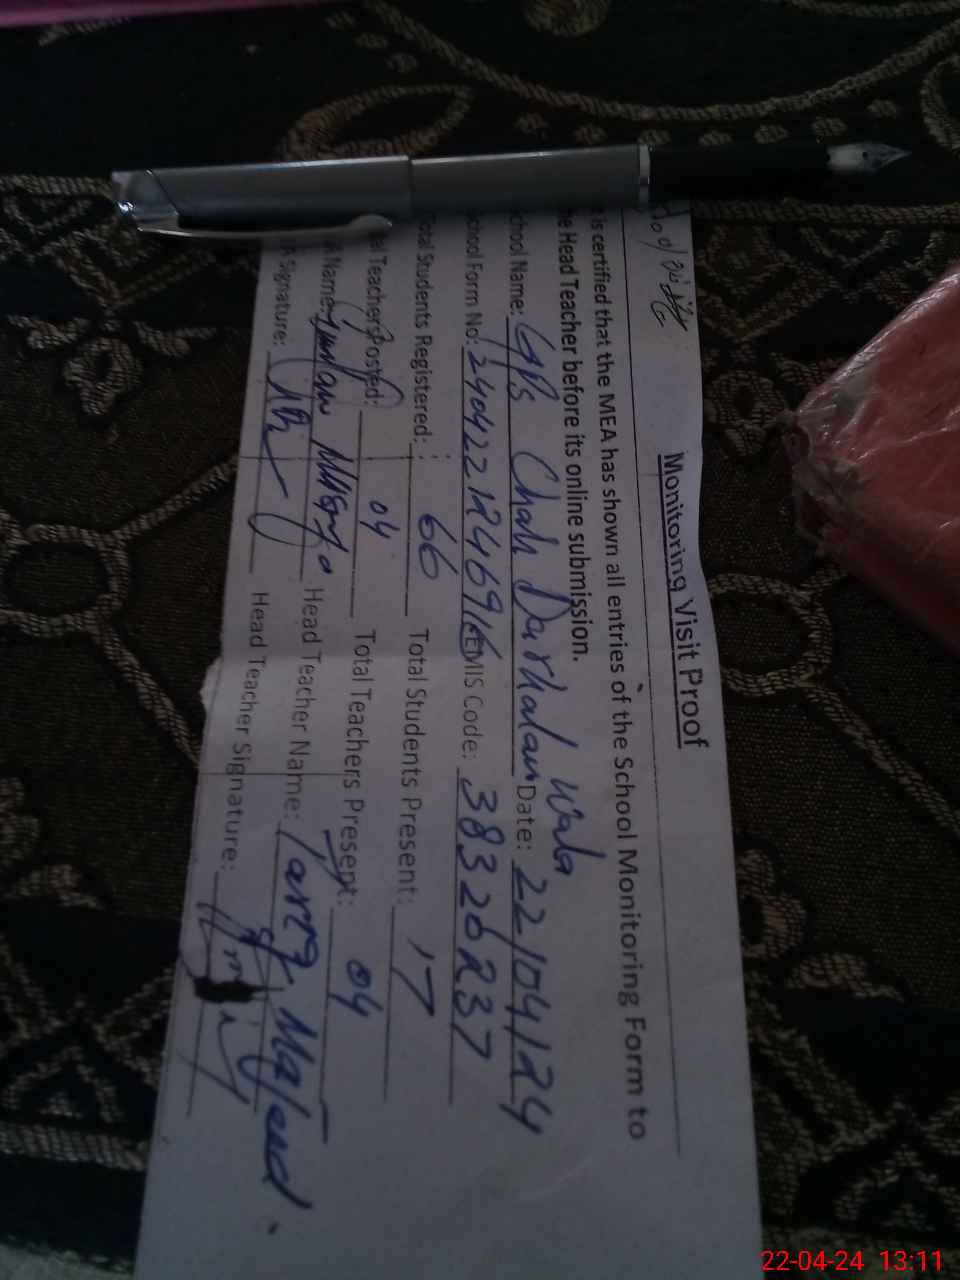 Monitoring Visit Proof
is certified that the MEA has shown all entries of the School Monitoring Form to
e Head Teacher before its online submission.
chool Name: GPS Chah Darkhalan Wala Date: 22/04/24
chool Form No: 2404221246916 EMIS Code: 38320237
Total Students Registered: 66 Total Students Present: 17
al Teachers Posted: 04 Total Teachers Present: 04
Name: Head Teacher Name: Tariq Majeed.
Signature: Head Teacher Signature:
22-04-24 13:11